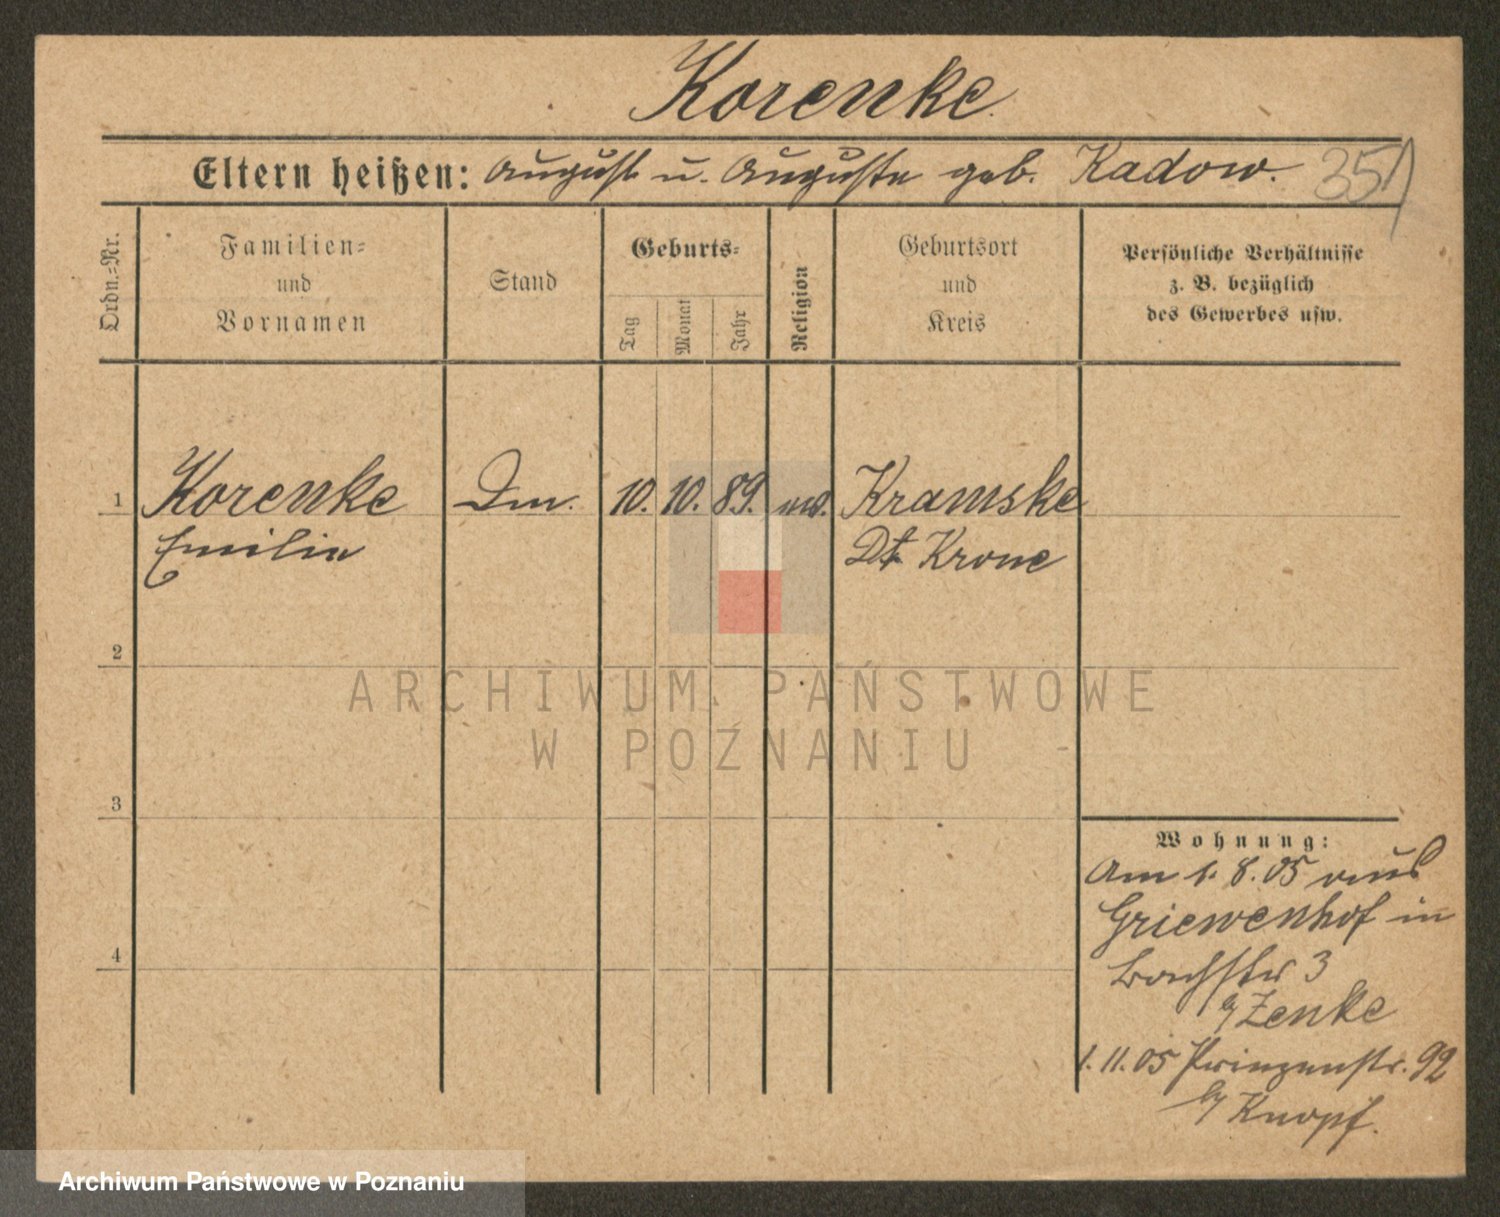 Korenke
Eltern heißen: August u. Auguste geb. Kadow. 351
Ordn.=Nr.
Familien=
und
Vornamen
Stand
Geburts=
Tag
Monat
Jahr
Religion
Geburtsort
und
Kreis
Persönliche Verhältnisse
z. B. bezüglich
des Gewerbes usw.
1 Korenke Dm. 10. 10. 89. ev. Kramske
Emilie Dt Krone
2
3
4
Wohnung:
Am 1. 8. 05 aus
Griewenhof in
Bachstr 3
b/ Zenke
1. 11. 05 Prinzenstr. 92
b/ Knopf.
ARCHIWUM PAŃSTWOWE
W POZNANIU
Archiwum Państwowe w Poznaniu